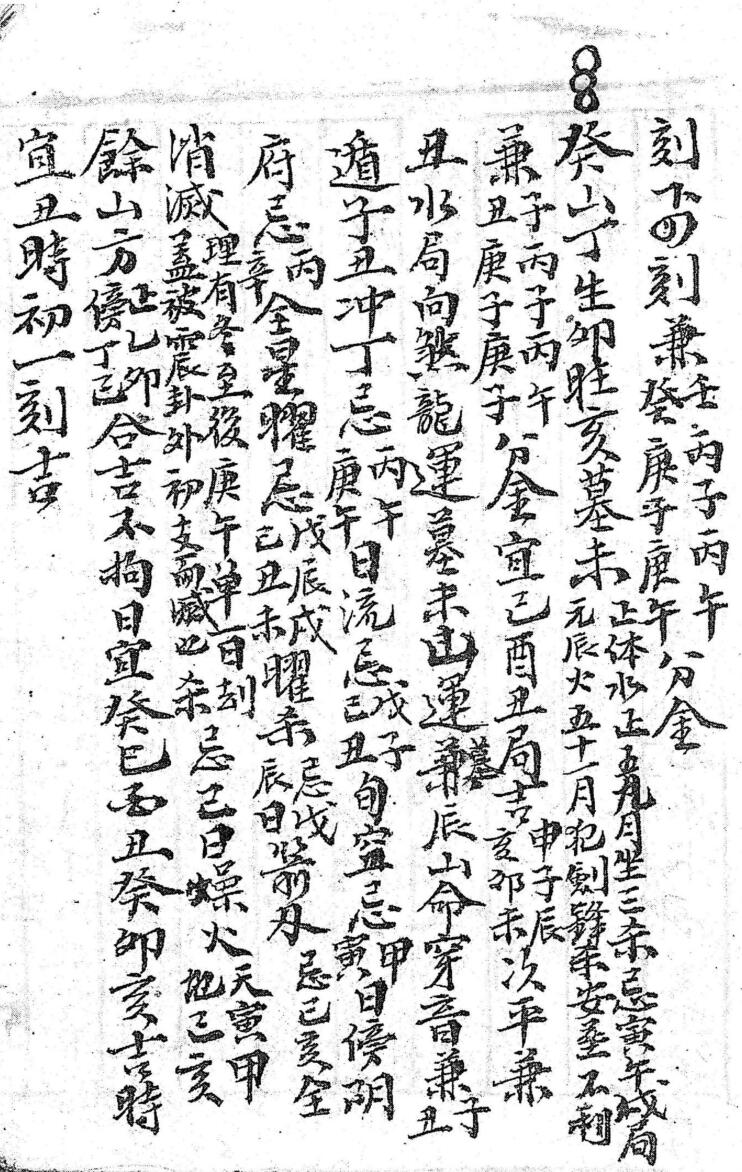 刻下四刻兼壬丙子丙午癸庚子庚午分金
癸山丁生卯旺亥墓未正体水正五九月坐三杀忌寅午戌局元辰火五十一月犯劍鋒未安葬不利
兼子丙子丙午丑庚子庚子分金宜巳酉丑局吉申子辰亥卯未次平兼
丑水局向煞龍運墓未山運墓辰山命穿音兼子丑
遁子丑冲丁忌丙午庚午日流忌戊子己丑旬空忌甲寅日傍阴
府忌丙辛全星曜忌戊辰戌己丑未曜杀忌戊辰日箭刃忌己亥全
消滅理有冬至後庚午单一日刦盖被震卦外初支而臧也杀忌己日燥火天寅甲地己亥
餘山方正乙卯傍丁巳合吉不拘日宜癸巳丑癸卯亥吉時
宜丑時初一刻吉